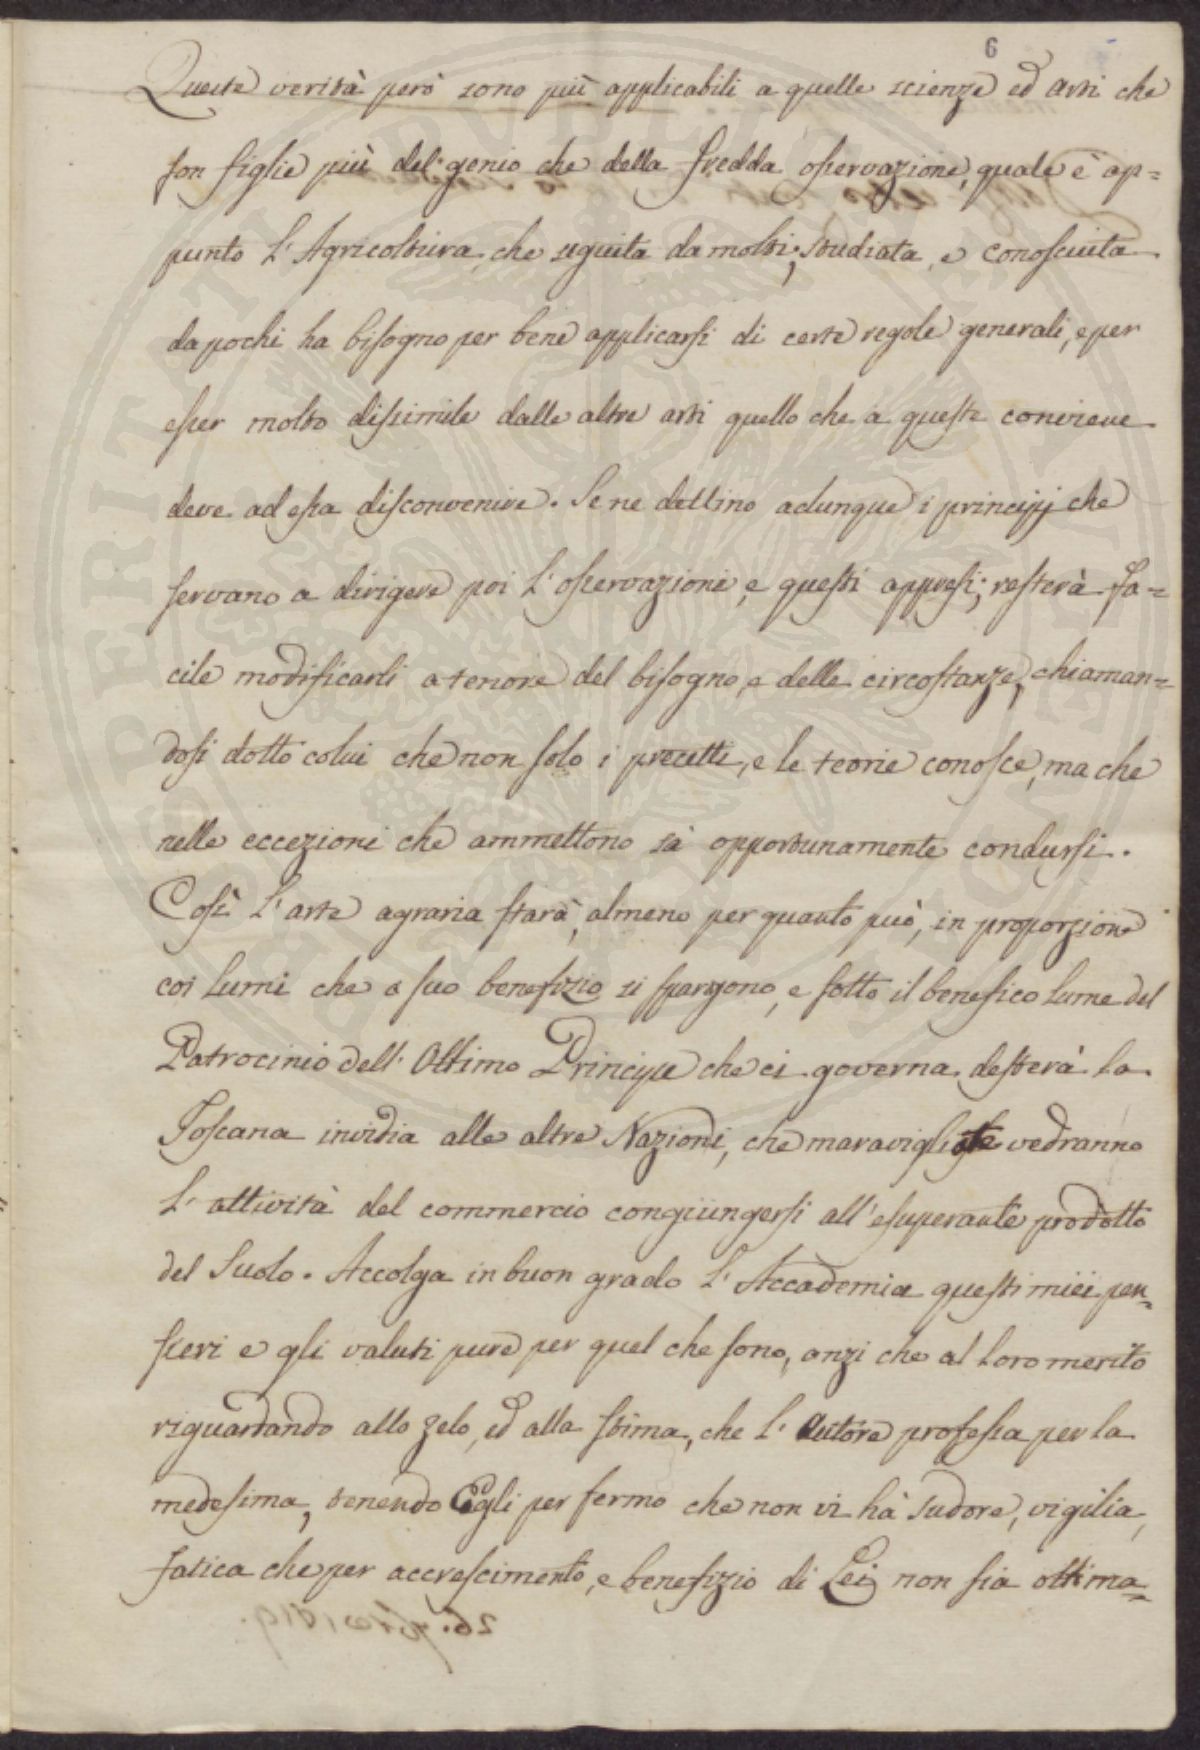 6
Queste verità però sono più applicabili a quelle scienze ed arti che
son figlie più del genio che della fredda osservazione, quale è ap=
punto l'Agricoltura, che seguita da molti; studiata, e conosciuta
da pochi ha bisogno per bene applicarsi di certe regole generali, e per
esser molto dissimile dalle altre arti quello che a queste conviene
deve ad essa disconvenire. Se ne dettino adunque i principij che
servano a dirigere poi l'osservazioni, e questi appresi; resterà fa=
cile modificarli a tenore del bisogno, e delle circostanze, chiaman=
dosi dotto colui che non solo i precetti, e le teorie conosce, ma che
nelle eccezioni che ammettono sà opportunamente condursi.
Così l'arte agraria starà, almeno per quanto può, in proporzione
coi lumi che a suo benefizio si spargono, e sotto il benefico lume del
Patrocinio dell'Ottimo Principe che ci governa desterà la
Toscana invidia alle altre Nazioni, che maravigliate vedranno
l'attività del commercio congiungersi all'esuperante prodotto
del Suolo. Accolga in buon grado l'Accademia questi miei pen=
sieri e gli valuti pure per quel che sono, anzi che al loro merito
riguardando allo zelo, ed alla stima, che l'Autore professa per la
medesima, tenendo Egli per fermo che non vi hà sudore, vigilia,
fatica che per accrescimento, e benefizio di Lei non sia ottima=